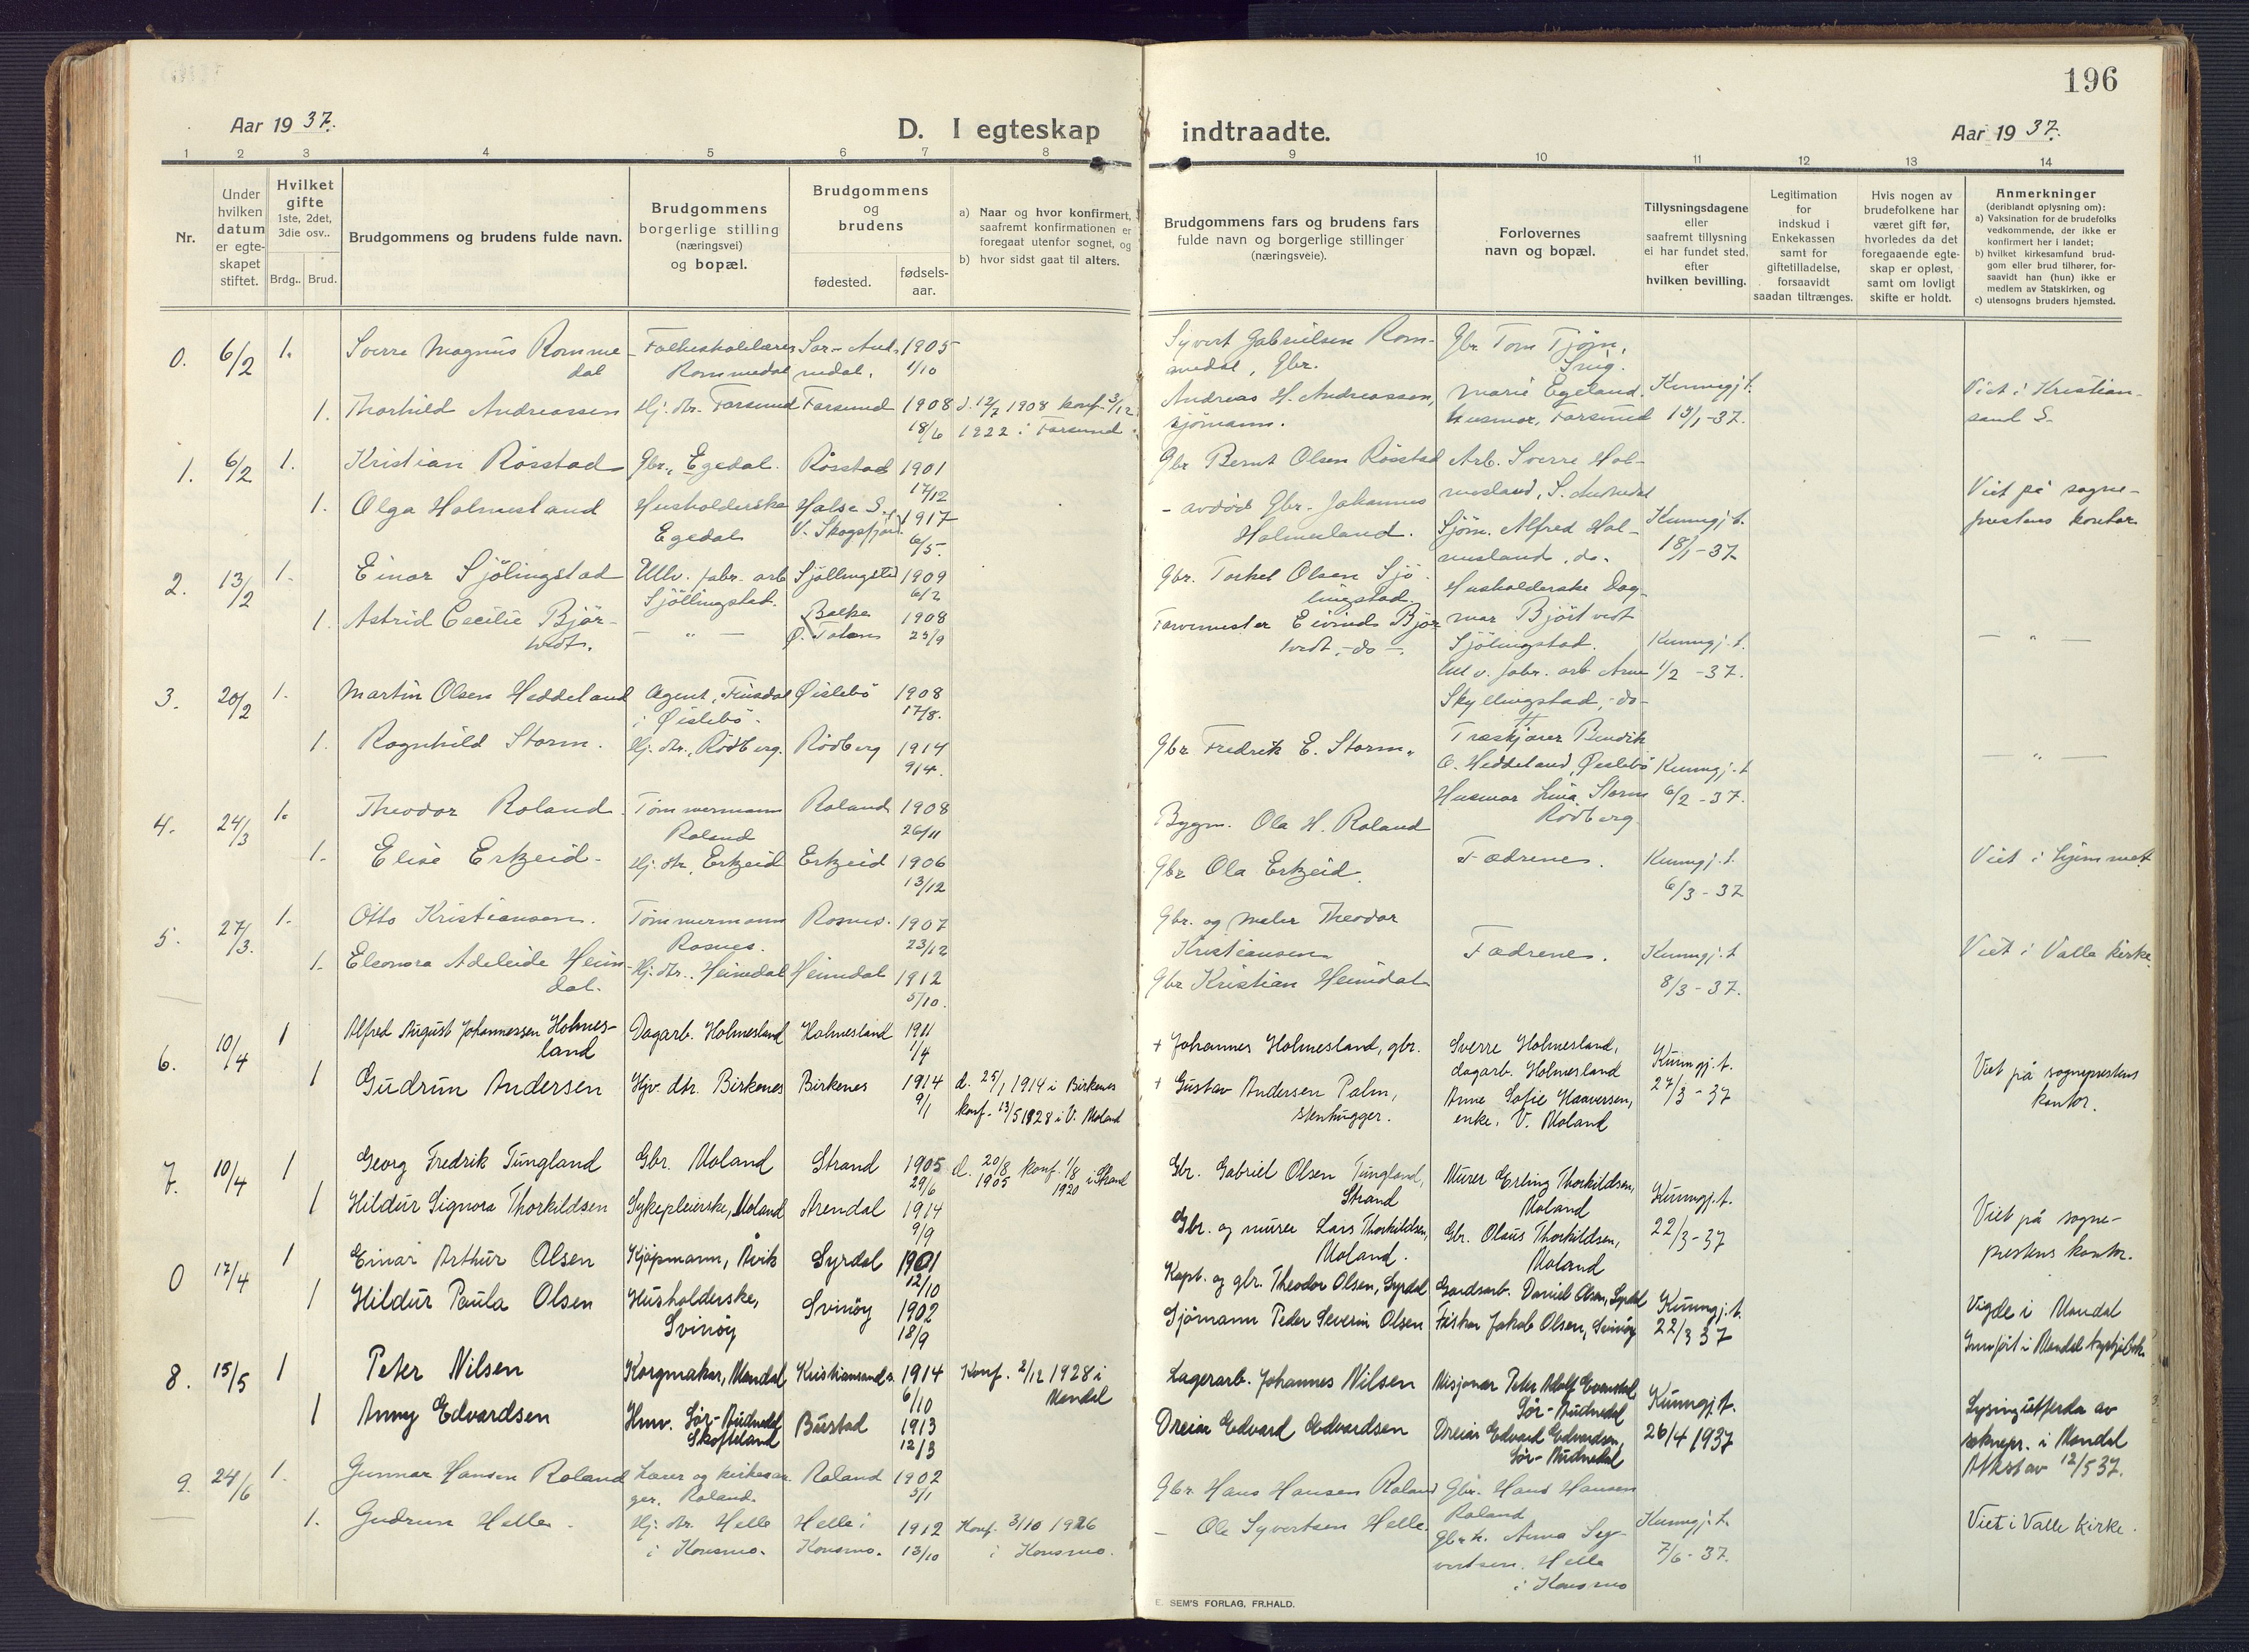 196
Aar 1937.
D. I egteskap
indtraadte.
Aar 1937.
1 2 3 4 5 6 7 8 9 10 11 12 13 14
Nr.
Under hvilken datum er egte-skapet stiftet.
Hvilket gifte 1ste, 2det, 3die osv..
Brdg..
Brud.
Brudgommens og brudens fulde navn.
Brudgommens borgerlige stilling (næringsvei) og bopæl.
Brudgommens og brudens
fødested.
fødsels-aar.
a) Naar og hvor konfirmert, saafremt konfirmationen er foregaat utenfor sognet, og
b) hvor sidst gaat til alters.
Brudgommens fars og brudens fars fulde navn og borgerlige stillinger (næringsveie).
Forlovernes navn og bopæl.
Tillysningsdagene eller saafremt tillysning ei har fundet sted, efter hvilken bevilling.
Legitimation for indskud i Enkekassen samt for giftetilladelse, forsaavidt saadan tiltrænges.
Hvis nogen av brudefolkene har været gift før, hvorledes da det foregaaende egte-skap er opløst, samt om lovligt skifte er holdt.
Anmerkninger (deriblandt oplysning om):
a) Vaksination for de brudefolks vedkommende, der ikke er konfirmert her i landet;
b) hvilket kirkesamfund brud-gom eller brud tilhører, for-saavidt han (hun) ikke er medlem av Statskirken, og
c) utensogns bruders hjemsted.
0. 6/2 1. Sverre Magnus Romme-dal
Folkeskolelærer Rommedal
Sør-Aud-nedal. 1905 1/10
Syvert Gabrielsen Rom-medal, Gbr.
Gbr. Tom Tjøm,
1. Thorhild Andreassen
Hj. dtr. Farsund
Farsund 1908 18/6
d. 12/7 1908 konf. 3/12 1922 i Farsund
Andreas H. Andreassen, sjömann.
Marie Egeland, husmor, Farsund
Kunngj. t. 15/1-37.
Viet i Kristian-sand S.
1. 6/2 1. Kristian Rösstad
Gbr., Egedal.
Rösstad 1901 17/12
Gbr Bernt Olsen Rösstad
Arb. Sverre Hol-mesland, S. Audnedal
1. Olga Holmesland
Husholderske Egedal
Halse S. V. Skogsfjord. 1917 6/5.
- avdöd Gbr. Johannes Holmesland.
Sjöm. Alfred Hol-mesland, do.
Kunngj. t. 18/1-37
Viet på sogne-prestens kontor
2. 13/2 1. Einar Sjölingstad
Ullv. fabr. arb Sjöllingstad.
Sjöllingstad 1909 6/2
Gbr. Torkel Olsen Sjö-lingstad.
Husholderske Dag-mar Björtvedt Sjölingstad.
1. Astrid Cecilie Bjør-tvedt.
- " -
Balke Ø. Toten 1908 23/9
Farvemester Eivind Bjør-tvedt, -do-.
Ull v. fabr. arb Arne Skyllingstad, -do-
Kunngj. t. 1/2 -37.
- " -
3. 20/2 1. Martin Olsen Heddeland
Agent, Finsdal i Øislebö.
Øislebö 1908 17/8.
Træskjærer Bendik O. Heddeland, Øislebö
1. Ragnhild Storm.
Hj. dtr., Rödberg.
Rödberg 1914 9/4.
Gbr Fredrik E. Storm.
Husmor Lina Storm Rödberg
Kunngj. t 6/2 -37.
- " -
4. 24/3 1. Theodor Roland.
Tömmermann Roland
Roland 1908 26/11
Bygm. Ola H. Roland
1. Elise Erkzeid.
Hj. dtr, Erkzeid
Erkzeid 1906 13/12
Gbr Ola Erkzeid.
Fædrene.
Kunngj. t. 6/3-37
Viet i hjemmet.
5. 27/3. 1. Otto Kristiansen.
Tömmermann Rosnes.
Rosnes. 1907 23/12
Gbr. og maler Theodor Kristiansen
1. Eleonora Adeleide Heim-dal.
Hj. dtr. Heimdal
Heimdal 1912 5/10.
Gbr Kristian Heimdal
Fædrene.
Kunngj. t 8/3-37.
Viet i Valle kirke.
6. 10/4 1 Alfred August Johannessen Holmes-land
Dagarb. Holmesland
Holmesland 1911 1/4
+ Johannes Holmesland, gbr.
Sverre Holmesland, dagarb. Holmesland
1 Gudrun Andersen
Hjv. dtr. Birkenes
Birkenes 1914 9/1
d. 25/1 1914 i Birkenes konf. 13/5 1928 i V. Moland
+ Gustav Andersen Palm, stenhugger.
Anne Sofie Haaversen, enke, V. Moland
Kunngj. t. 27/3-37
Viet på sogneprestens kontor.
7. 10/4 1 Georg Fredrik Tungland
Gbr. Moland
Strand 1905 29/6
d. 20/8 1905 konf. 1/8 1920 i Strand
Gbr. Gabriel Olsen Tungland, Strand
Murer Erling Thorkildsen, Moland
1 Hildur Signora Thorkildsen
Sykepleierske, Moland
Arendal 1914 9/9
Gbr. og murer Lars Thorkildsen, Moland.
Gbr. Olaus Thorkildsen, Moland
Kunngj. t. 22/3-37
Viet på sogne-prestens kontor.
0 17/4 1 Einar Arthur Olsen
Kjøpmann, Åvik
Syrdal 1901 12/10
Kapt. og gbr. Theodor Olsen, Syrdal
Gardsarb. Daniel Olsen, Syrdal
1 Hildur Paula Olsen
Husholderske, Svinöy
Svinöy 1902 18/9
Sjömann Peder Severin Olsen
Fisker Jakob Olsen, Svinöy
Kunngj. t. 22/3 37
Vigde i Mandal
Innfört i Mandal kyrkjebok.
8. 15/5 1 Peter Nilsen
Korgmaker, Mandal
Kristiansand s. 1914 6/10
Konf. 2/12 1928 i Mandal
Lagerarb. Johannes Nilsen
Misjonær Peter Adolf Evensdal, Sør-Audnedal
1 Anny Edvardsen
Hmv. Sør-Audnedal, Skofteland
Bustad 1913 12/3
Dreiar Edvard Edvardsen
Dreiar Edvard Edvardsen, Sør-Audnedal
Kunngj. t. 26/4 1937
Lysing utferda av soknepr. i Mandal
Attest av 12/5 37.
9. 24/6 1. Gunnar Hansen Roland
Lærer og kirkesan-ger, Roland.
Roland 1902 5/1
Gbr. Hans Hansen Roland
Gbr. Hans Hansen Roland
1. Gudrun Helle.
Hj. dtr. Helle i Konsmo.
Helle i Konsmo. 1912 13/10
Konf. 3/10 1926 i Konsmo.
- Ole Syvertsen Helle.
Gbr.k. Anna Sy-vertsen, Helle i Konsmo
Kunngj. t. 7/6-37.
Viet i Valle kirke.
E. SEM'S FORLAG, FR.HALD.